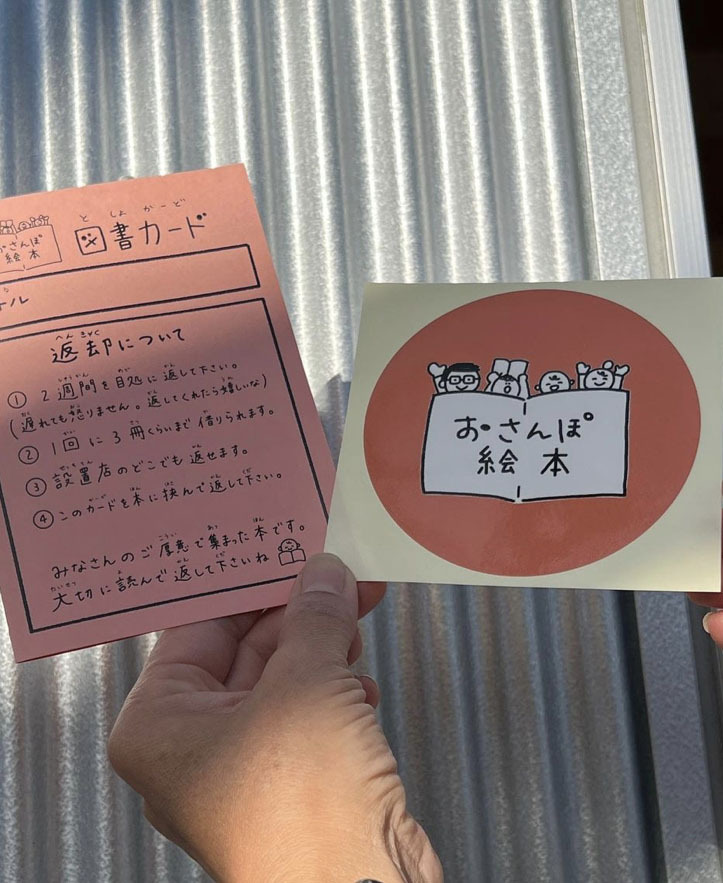 おさんぽ
絵本
としょかーど
図書カード
ル
へんきゃく
返却について
① 2週間を目処に返して下さい。
(遅れても怒りません。返してくれたら嬉しいな)
② 1回に3冊くらいまで借りられます。
③ 設置店のどこでも返せます。
④ このカードを本に挟んで返して下さい。
みなさんのご厚意で集まった本です。
大切に読んで返して下さいね
おさんぽ
絵本